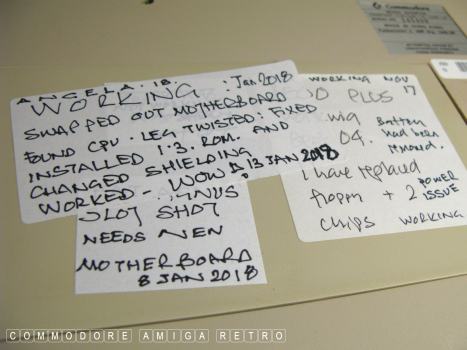 Commodore
ANGELA. 18.
WORKING : Jan 2018
SWAPPED OUT MOTHERBOARD
FOUND CPU. LEG TWISTED: FIXED
INSTALLED 1.3. ROM. AND
CHANGED SHIELDING
WORKED - WOW 13 JAN 2018
SLOT SHOT
NEEDS NEW
MOTHERBOARD
8 JAN 2018
WORKING NOV
17
PLUS
04. Battery
had been
removed.
I have replaced
floppy + 2 POWER
ISSUE
chips WORKING
COMMODORE AMIGA RETRO